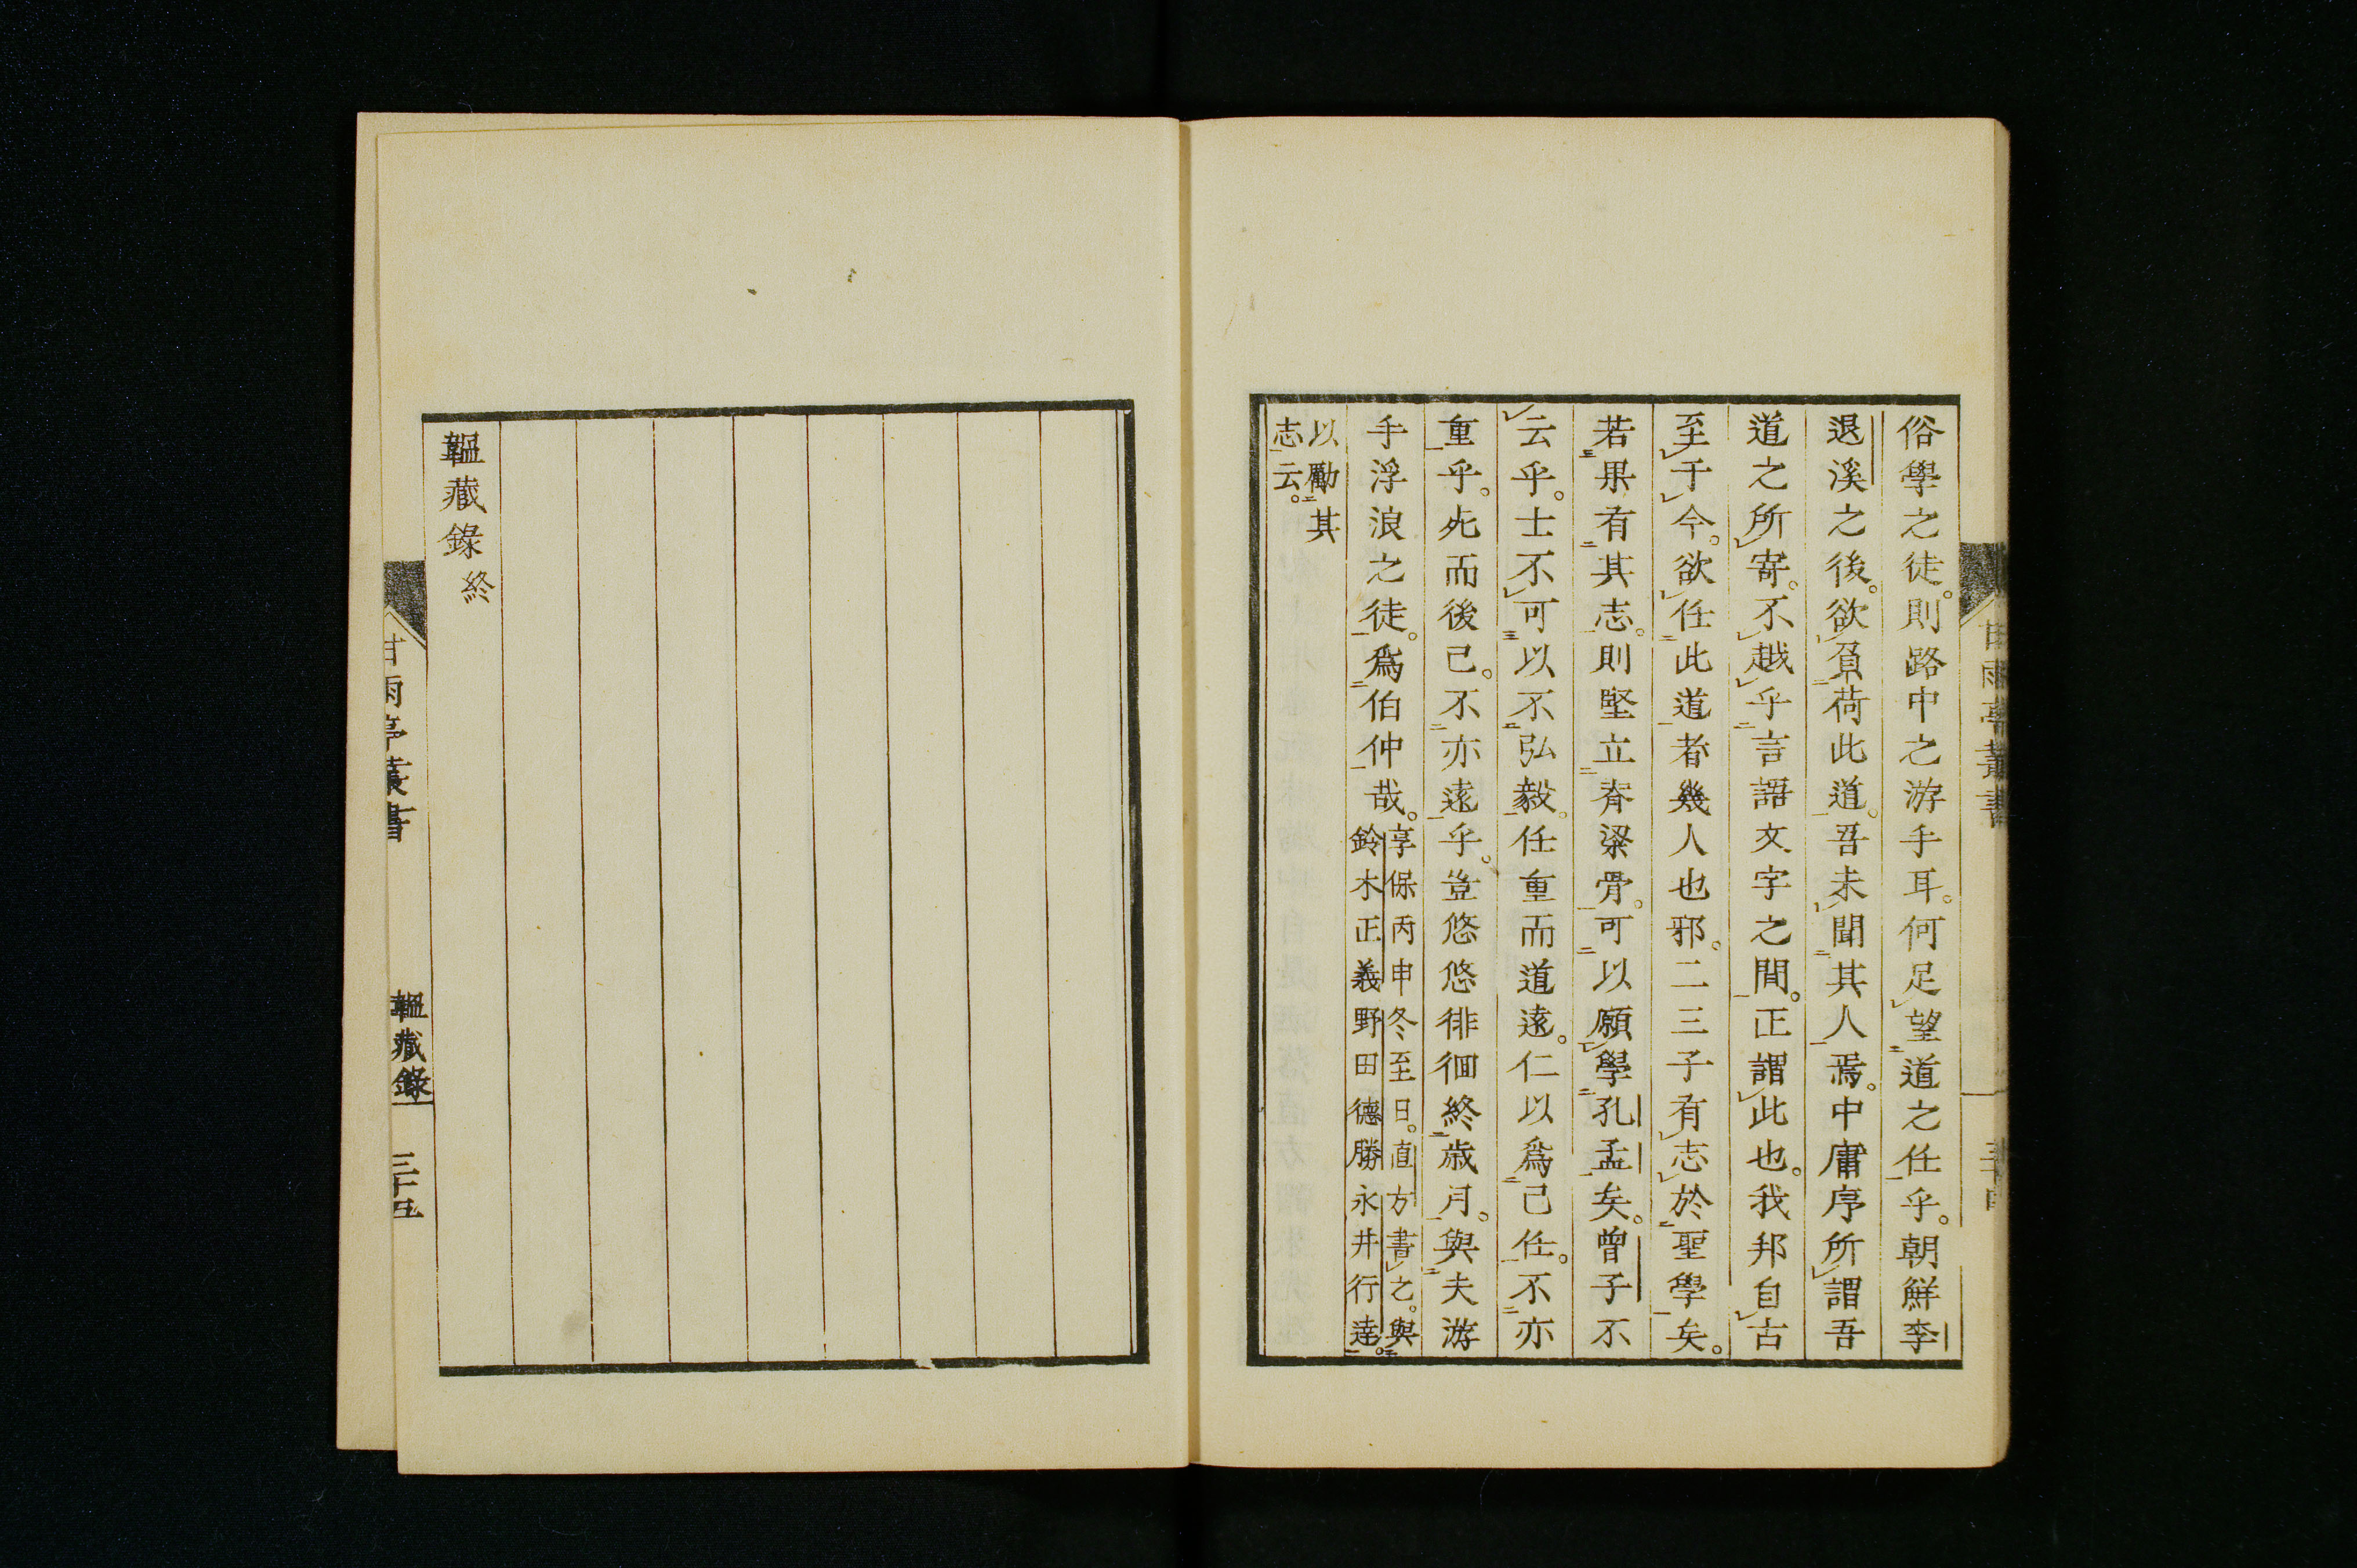 俗學之徒。則路中之游手耳。何足望道之任乎。朝鮮李
退溪之後。欲負荷此道。吾未聞其人焉。中庸序所謂吾
道之所寄。不越乎言語文字之間。正謂此也。我邦自古
至于今。欲任此道者幾人也邪。二三子有志於聖學矣。
若果有其志。則堅立脊梁骨。可以願學孔孟矣。曾子不
云乎。士不可以不弘毅。任重而道遠。仁以爲己任。不亦
重乎。死而後已。不亦遠乎。豈悠悠徘徊終歲月。與夫游
手浮浪之徒。爲伯仲哉。
享保丙申冬至日。直方書之。與
鈴木正義野田德勝永井行達。
以勵其
志云。
韞藏錄終
甘雨亭叢書
韞藏錄
三十五